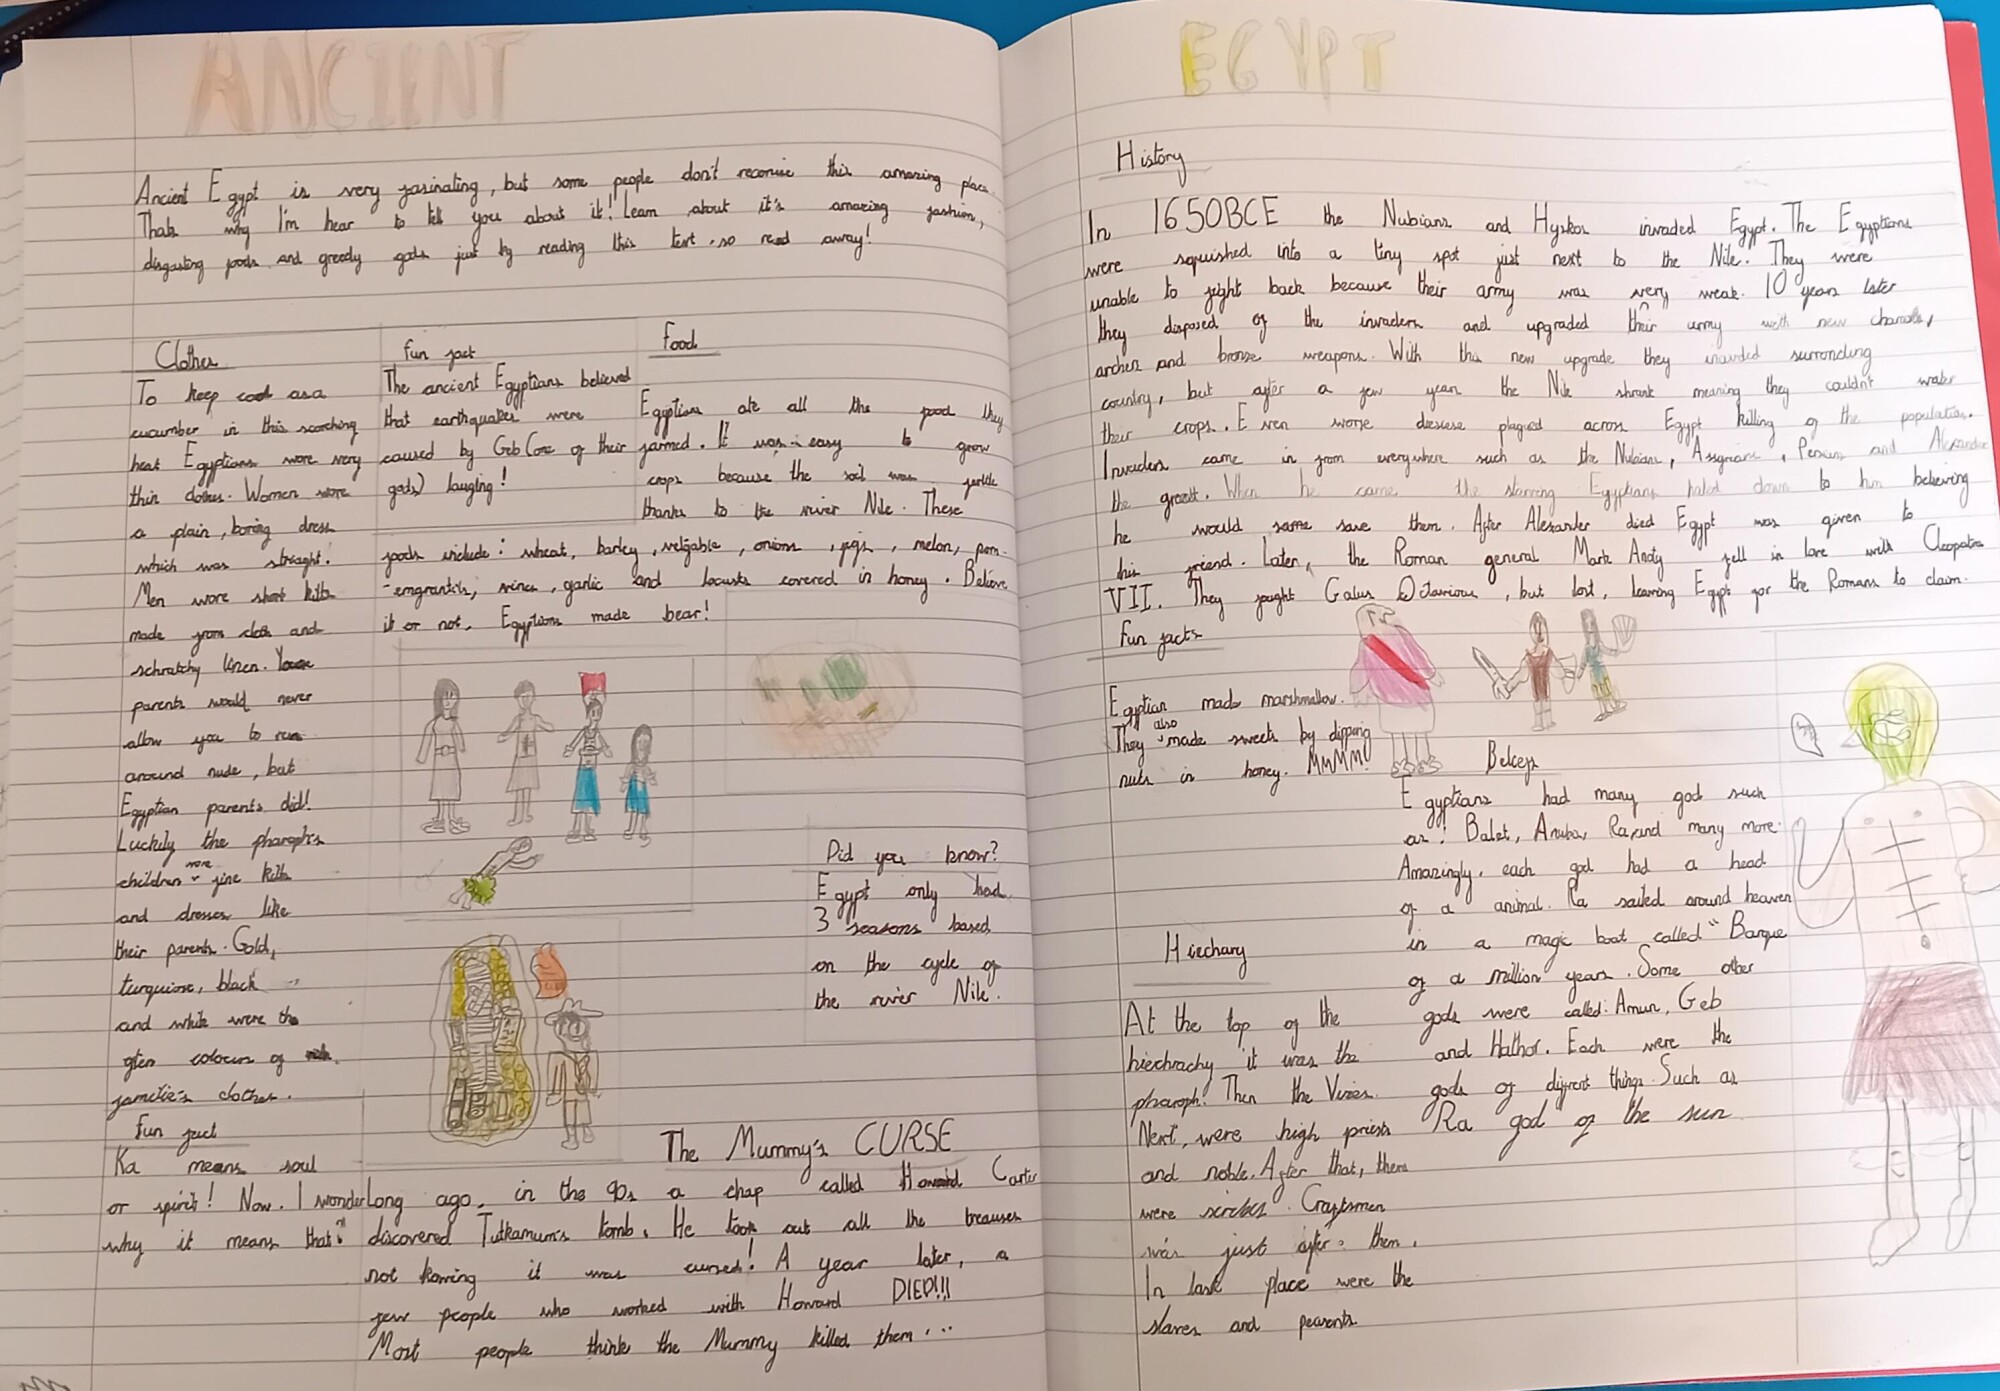 ANCIENT
Ancient Egypt is very fasinating, but some people don't reconise this amazing place.
Thats why I'm hear to tell you about it! Learn about it's amazing fashion,
disgusting foods and greedy gods just by reading this text, so read away!
Clothes
To keep cool as a
cucumber in this scorching
heat Egyptians wore very
thin clothes. Women wore
a plain, boring dress
which was striaght!
Men wore short kilts
made from cloth and
schratchy linen. Youre
parents would never
allow you to run
around nude, but
Egyptian parents did!
Luckily the pharaph's
children wore fine kilts
and dresses like
their parents. Gold,
turquiose, black
and white were the
often colours of rich
familie's clothes.
Fun fact
Ka means soul
or spirit! Now. I wonder
why it means that?
Fun fact
The ancient Egyptians believed
that earthquakes were
caused by Geb (one of their
gods) lauging!
Food
Egyptians ate all the food they
farmed. It was easy to grow
crops because the soil was fertile
thanks to the river Nile. These
foods include: wheat, barley, vegtable, onions, figs, melon, pom-
-emgrantes, vines, garlic and locusts covered in honey. Believe
it or not, Egyptions made bear!
Did you know?
Egypt only had
3 seasons based
on the cycle of
the river Nile.
The Mummy's CURSE
Long ago, in the 90s a chap called Howard Carter
discovered Tutkamum's tomb. He took out all the treauses
not kowing it was cursed! A year later, a
few people who worked with Howard DIED!!!
Most people think the Mummy killed them...
EGYPT
History
In 1650BCE the Nubians and Hyskos invaded Egypt. The Egyptians
were squished into a tiny spot just next to the Nile. They were
unable to fight back because their army was very weak. 10 years later
they disposed of the invaders and upgraded their army with new chariots,
archers and bronze weapons. With this new upgrade they invaded surronding
country, but after a few years the Nile shrank meaning they couldn't water
their crops. Even worse diesese plagued across Egypt killing of the population.
Invaders came in from everywhere such as the Nubians, Assyrians, Persians and Alexander
the greatt. When he came the starving Egyptians haled down to him believing
he would same save them. After Alexander died Egypt was given to
his friend. Later, the Roman general Mark Antony fell in love with Cleopatra
VII. They fought Gaius Octavious, but lost, leaving Egypt for the Romans to claim.
Fun facts
Egyptian made marshmallow.
They also made sweets by dipping
nuts in honey. MMMM!
Hiechary
At the top of the
hiechrachy it was the
pharoph. Then the Vizier.
Next, were high priests
and noble. After that, there
were scribes. Craftsmen
was just after them.
In last place were the
slaves and pesents.
Beleifs
Egyptians had many god such
as: Bastet, Anubis, Ra, and many more.
Amazingly, each god had a head
of a animal. Ra sailed around heaven
in a magic boat called "Barque
of a million years. Some other
gods were called: Amun, Geb
and Hathor. Each were the
gods of diffrent things. Such as
Ra god of the sun